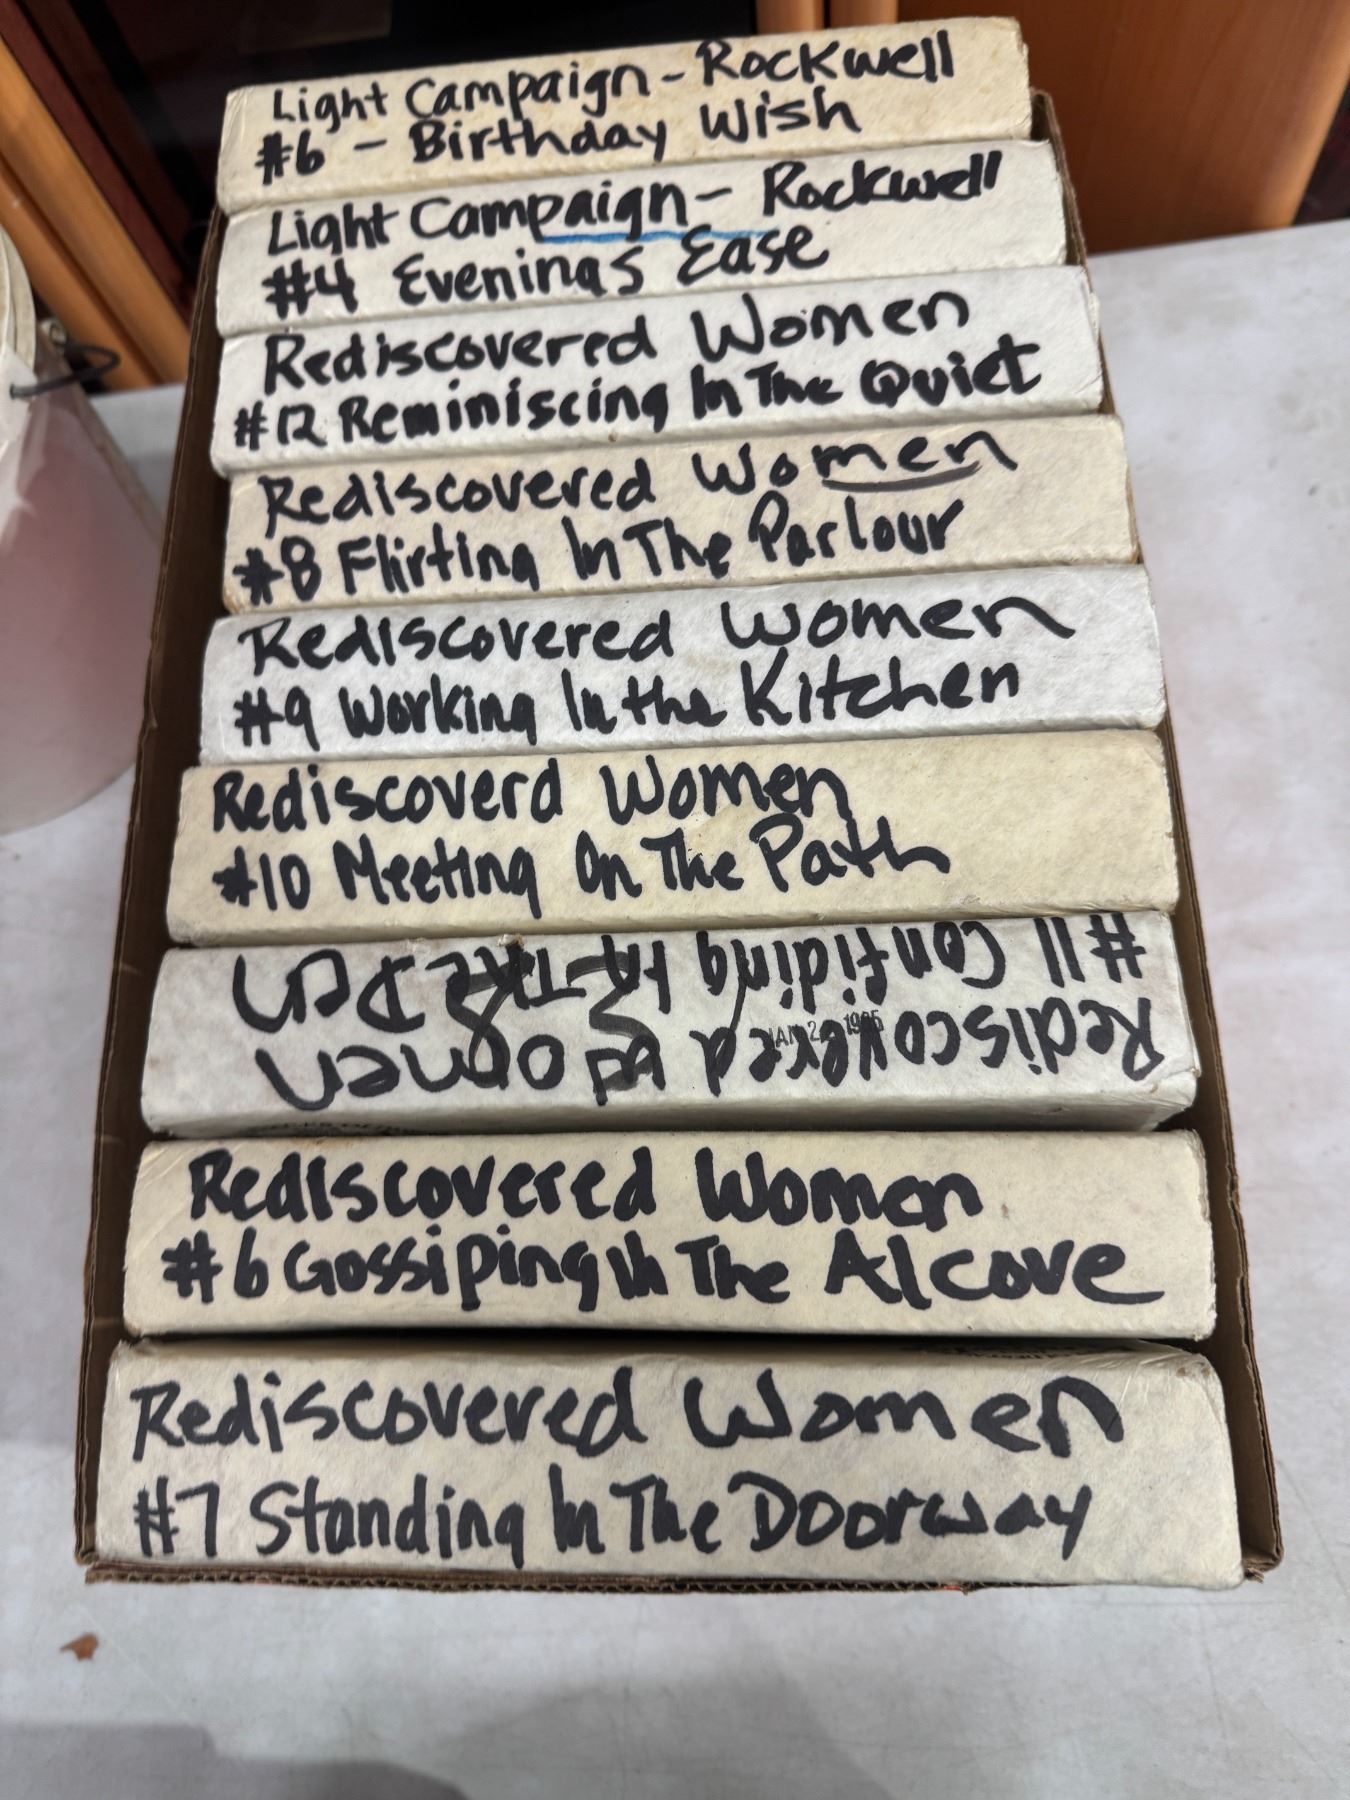 Light Campaign - Rockwell
#6 - Birthday Wish
Light Campaign - Rockwell
#4 Evenings Ease
Rediscovered Women
#12 Reminiscing In The Quiet
Rediscovered Women
#8 Flirting In The Parlour
Rediscovered Women
#9 Working In the Kitchen
Rediscoverd Women
#10 Meeting On The Path
Rediscovered Women
#11 Confiding In The Den
Rediscovered Women
#6 Gossiping in The Alcove
Rediscovered Women
#7 Standing In The Doorway